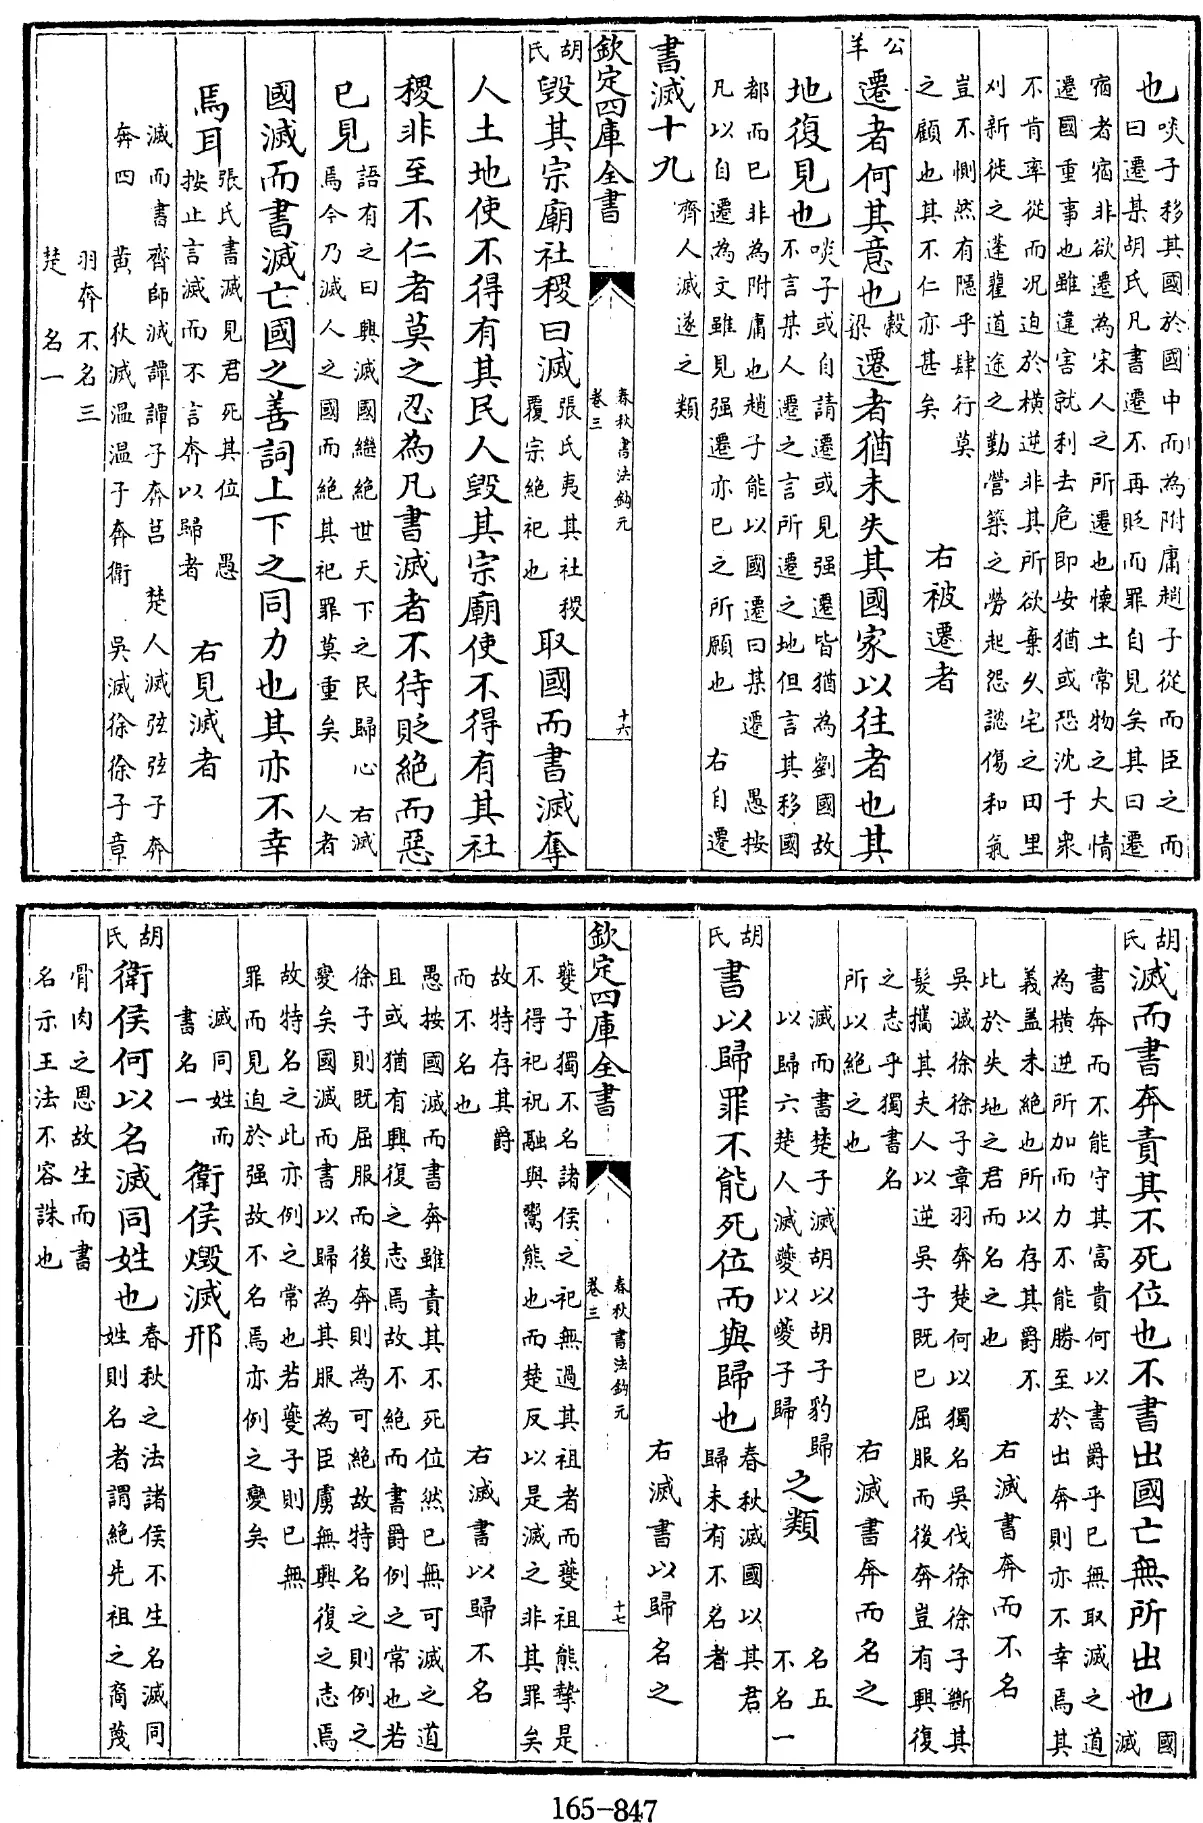 也啖子移其國於國中而為附庸趙子從而臣之而
曰遷某胡氏凡書遷不再貶而罪自見矣其曰遷
宿者宿非欲遷為宋人之所遷也懷土常物之大情
遷國重事也雖違害就利去危即安猶或恐沈于衆
不肯率從而况迫於横逆非其所欲棄久宅之田里
刈新徙之蓬藋道途之勤營築之勞起怨諮傷和氣
豈不惻然有隱乎肆行莫
之顧也其不仁亦甚矣
右被遷者
公羊遷者何其意也穀梁遷者猶未失其國家以往者也其
地復見也啖子或自請遷或見强遷皆猶為劉國故
不言某人遷之言所遷之地但言其移國
都而已非為附庸也趙子能以國遷曰某遷 愚按
凡以自遷為文雖見强遷亦已之所願也 右自遷
書滅十九 齊人滅遂之類
欽定四庫全書 春秋書法鈎元 卷三 十六
胡氏毀其宗廟社稷曰滅張氏夷其社稷
覆宗絶祀也
取國而書滅奪
人土地使不得有其民人毀其宗廟使不得有其社
稷非至不仁者莫之忍為凡書滅者不待貶絶而惡
已見語有之曰興滅國繼絶世天下之民歸心 右滅
焉今乃滅人之國而絶其祀罪莫重矣 人者
國滅而書滅亡國之善詞上下之同力也其亦不幸
焉耳張氏書滅見君死其位 愚
按止言滅而不言奔以歸者
右見滅者
滅而書齊師滅譚譚子奔莒 楚人滅弦弦子奔
奔四 黄 狄滅温温子奔衛 吳滅徐徐子章
羽奔不名三
楚 名一
胡氏滅而書奔責其不死位也不書出國亡無所出也國
滅
書奔而不能守其富貴何以書爵乎已無取滅之道
為横逆所加而力不能勝至於出奔則亦不幸焉其
義盖未絶也所以存其爵不
比於失地之君而名之也
右滅書奔而不名
吳滅徐徐子章羽奔楚何以獨名吳伐徐徐子斷其
髮攜其夫人以逆吳子既已屈服而後奔豈有興復
之志乎獨書名
所以絶之也
右滅書奔而名之
滅而書楚子滅胡以胡子豹歸
以歸六楚人滅夔以夔子歸
之類 名五
不名一
胡氏書以歸罪不能死位而與歸也春秋滅國以其君
歸未有不名者
右滅書以歸名之
欽定四庫全書 春秋書法鈎元 卷三 十七
夔子獨不名諸侯之祀無過其祖者而夔祖熊摯是
不得祀祝融與鬻熊也而楚反以是滅之非其罪矣
故特存其爵
而不名也
右滅書以歸不名
愚按國滅而書奔雖責其不死位然已無可滅之道
且或猶有興復之志焉故不絶而書爵例之常也若
徐子則既屈服而後奔則為可絶故特名之則例之
變矣國滅而書以歸為其服為臣虜無興復之志焉
故特名之此亦例之常也若夔子則已無
罪而見迫於强故不名焉亦例之變矣
滅同姓而
書名一
衛侯燬滅邢
胡氏衛侯何以名滅同姓也春秋之法諸侯不生名滅同
姓則名者謂絶先祖之裔蔑
骨肉之恩故生而書
名示王法不容誅也
165-847